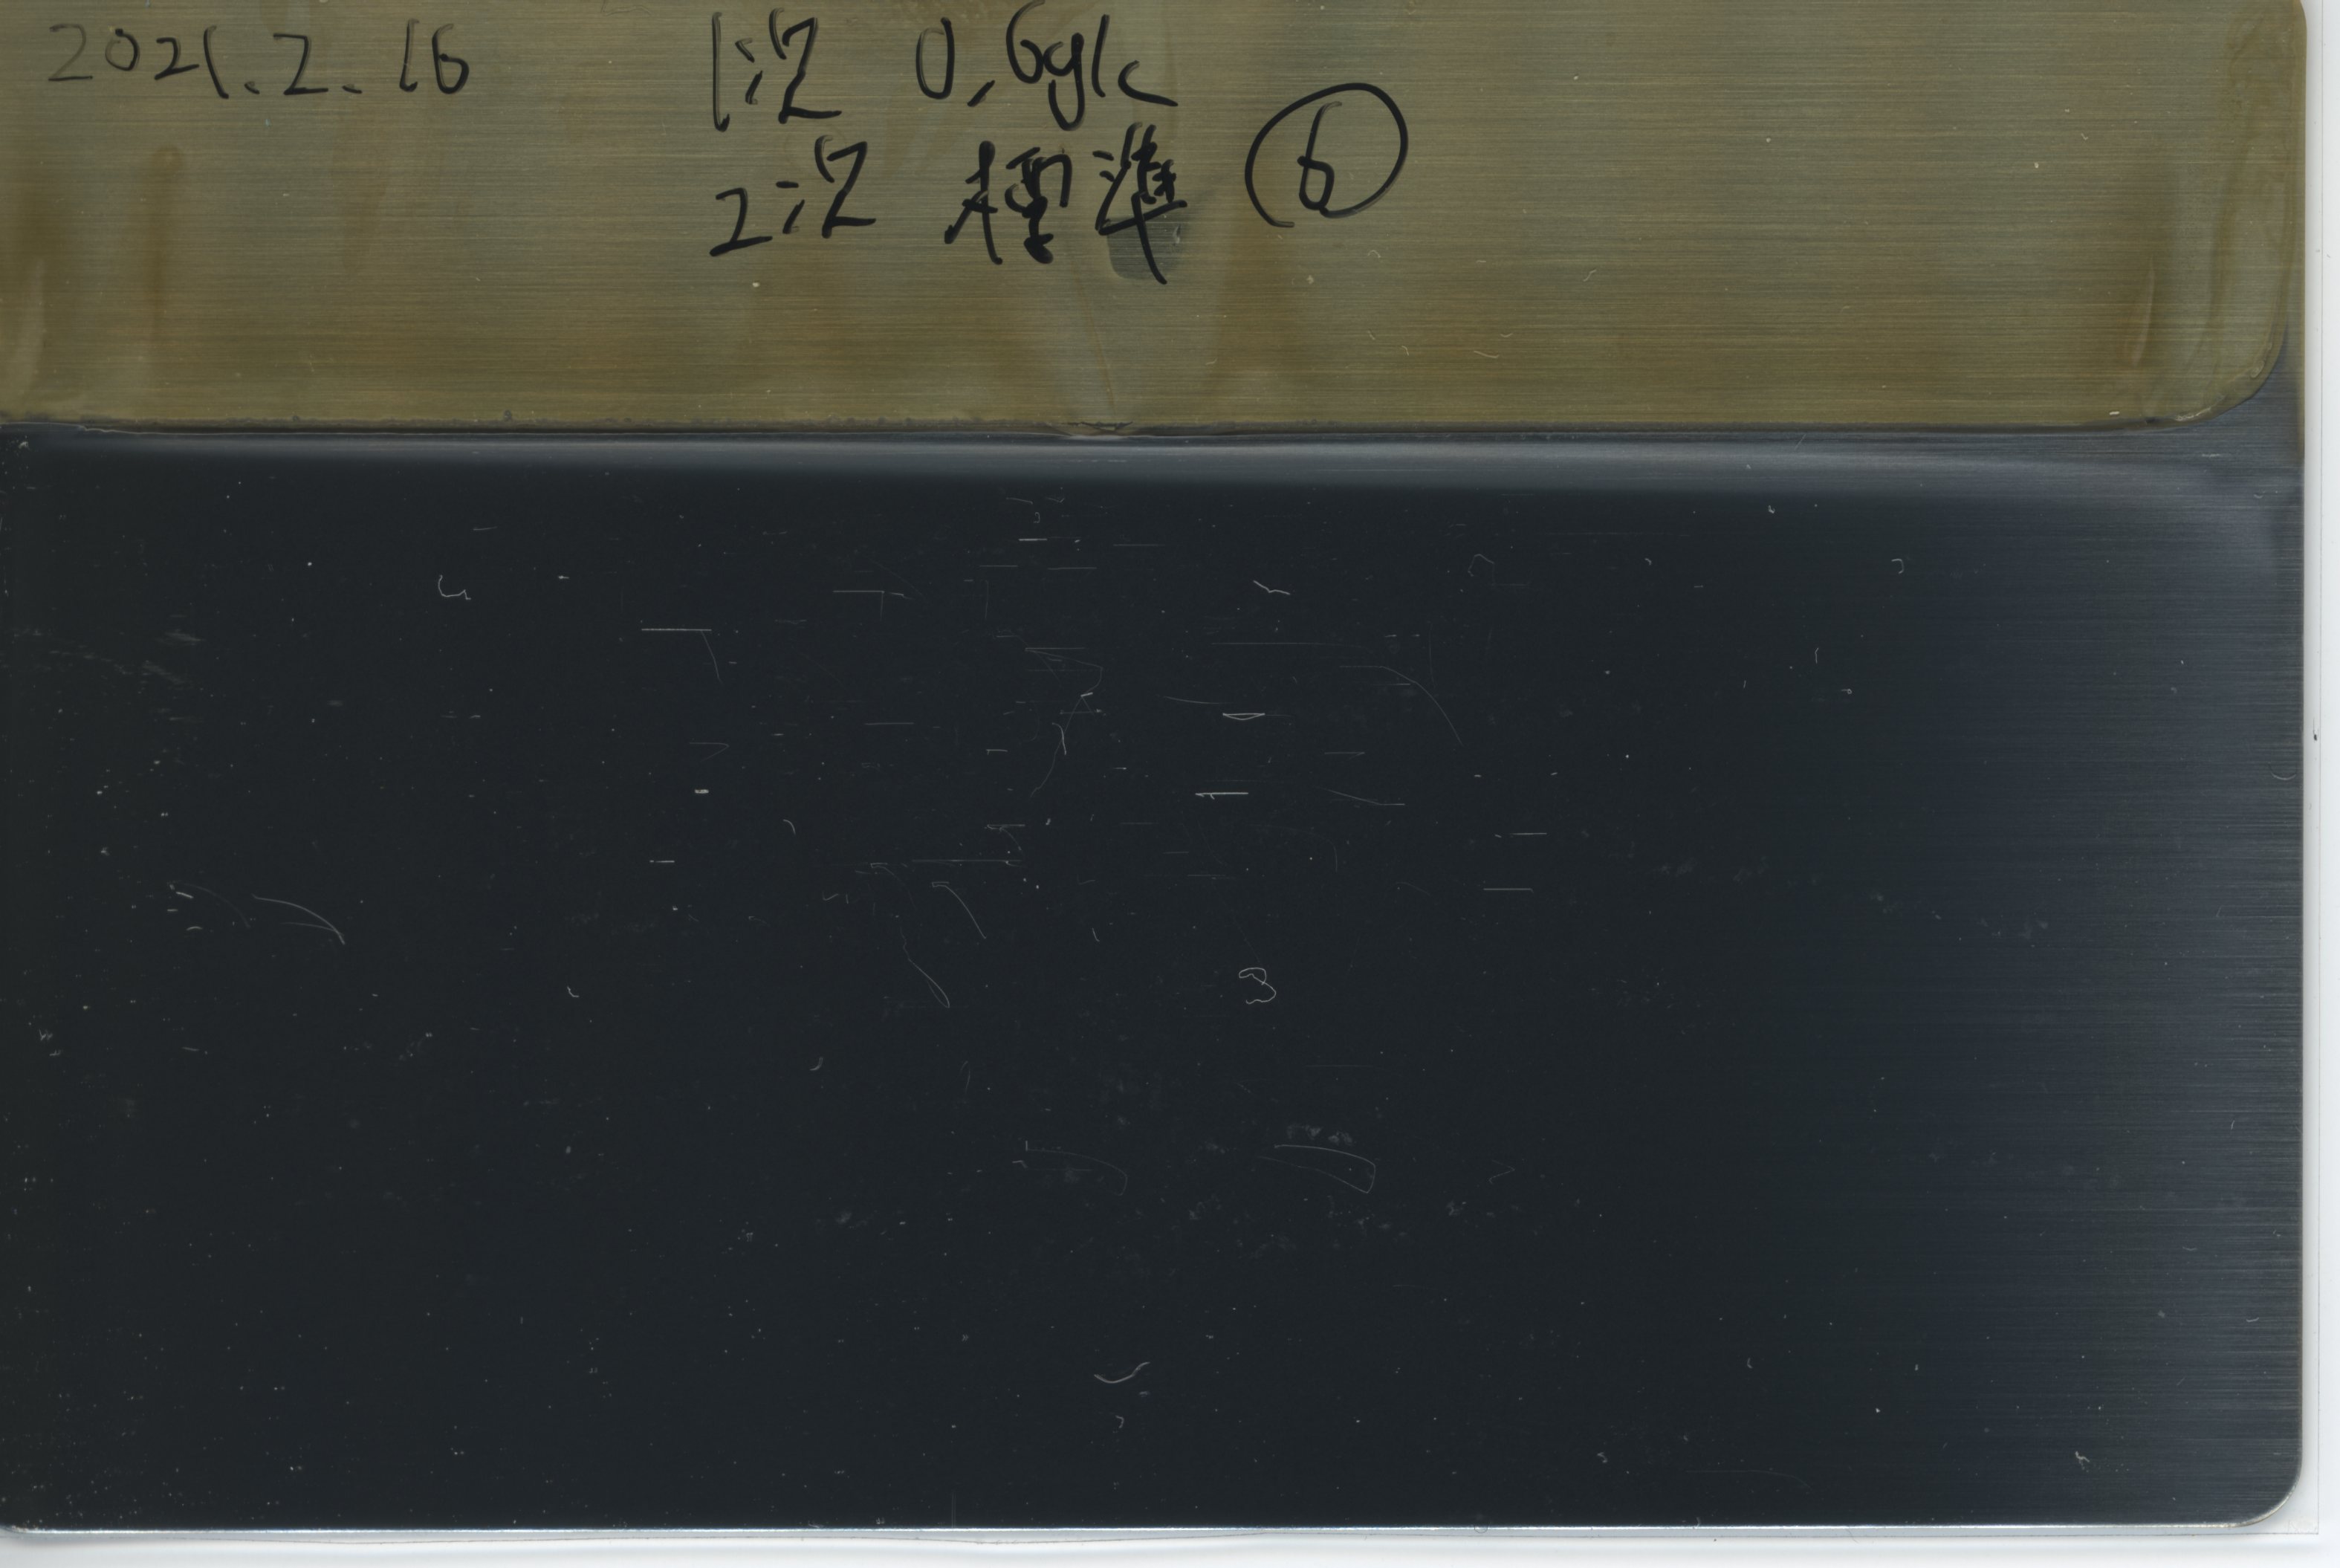 2021.2.16
1次 0,6g/L
2次 標準 ⑥